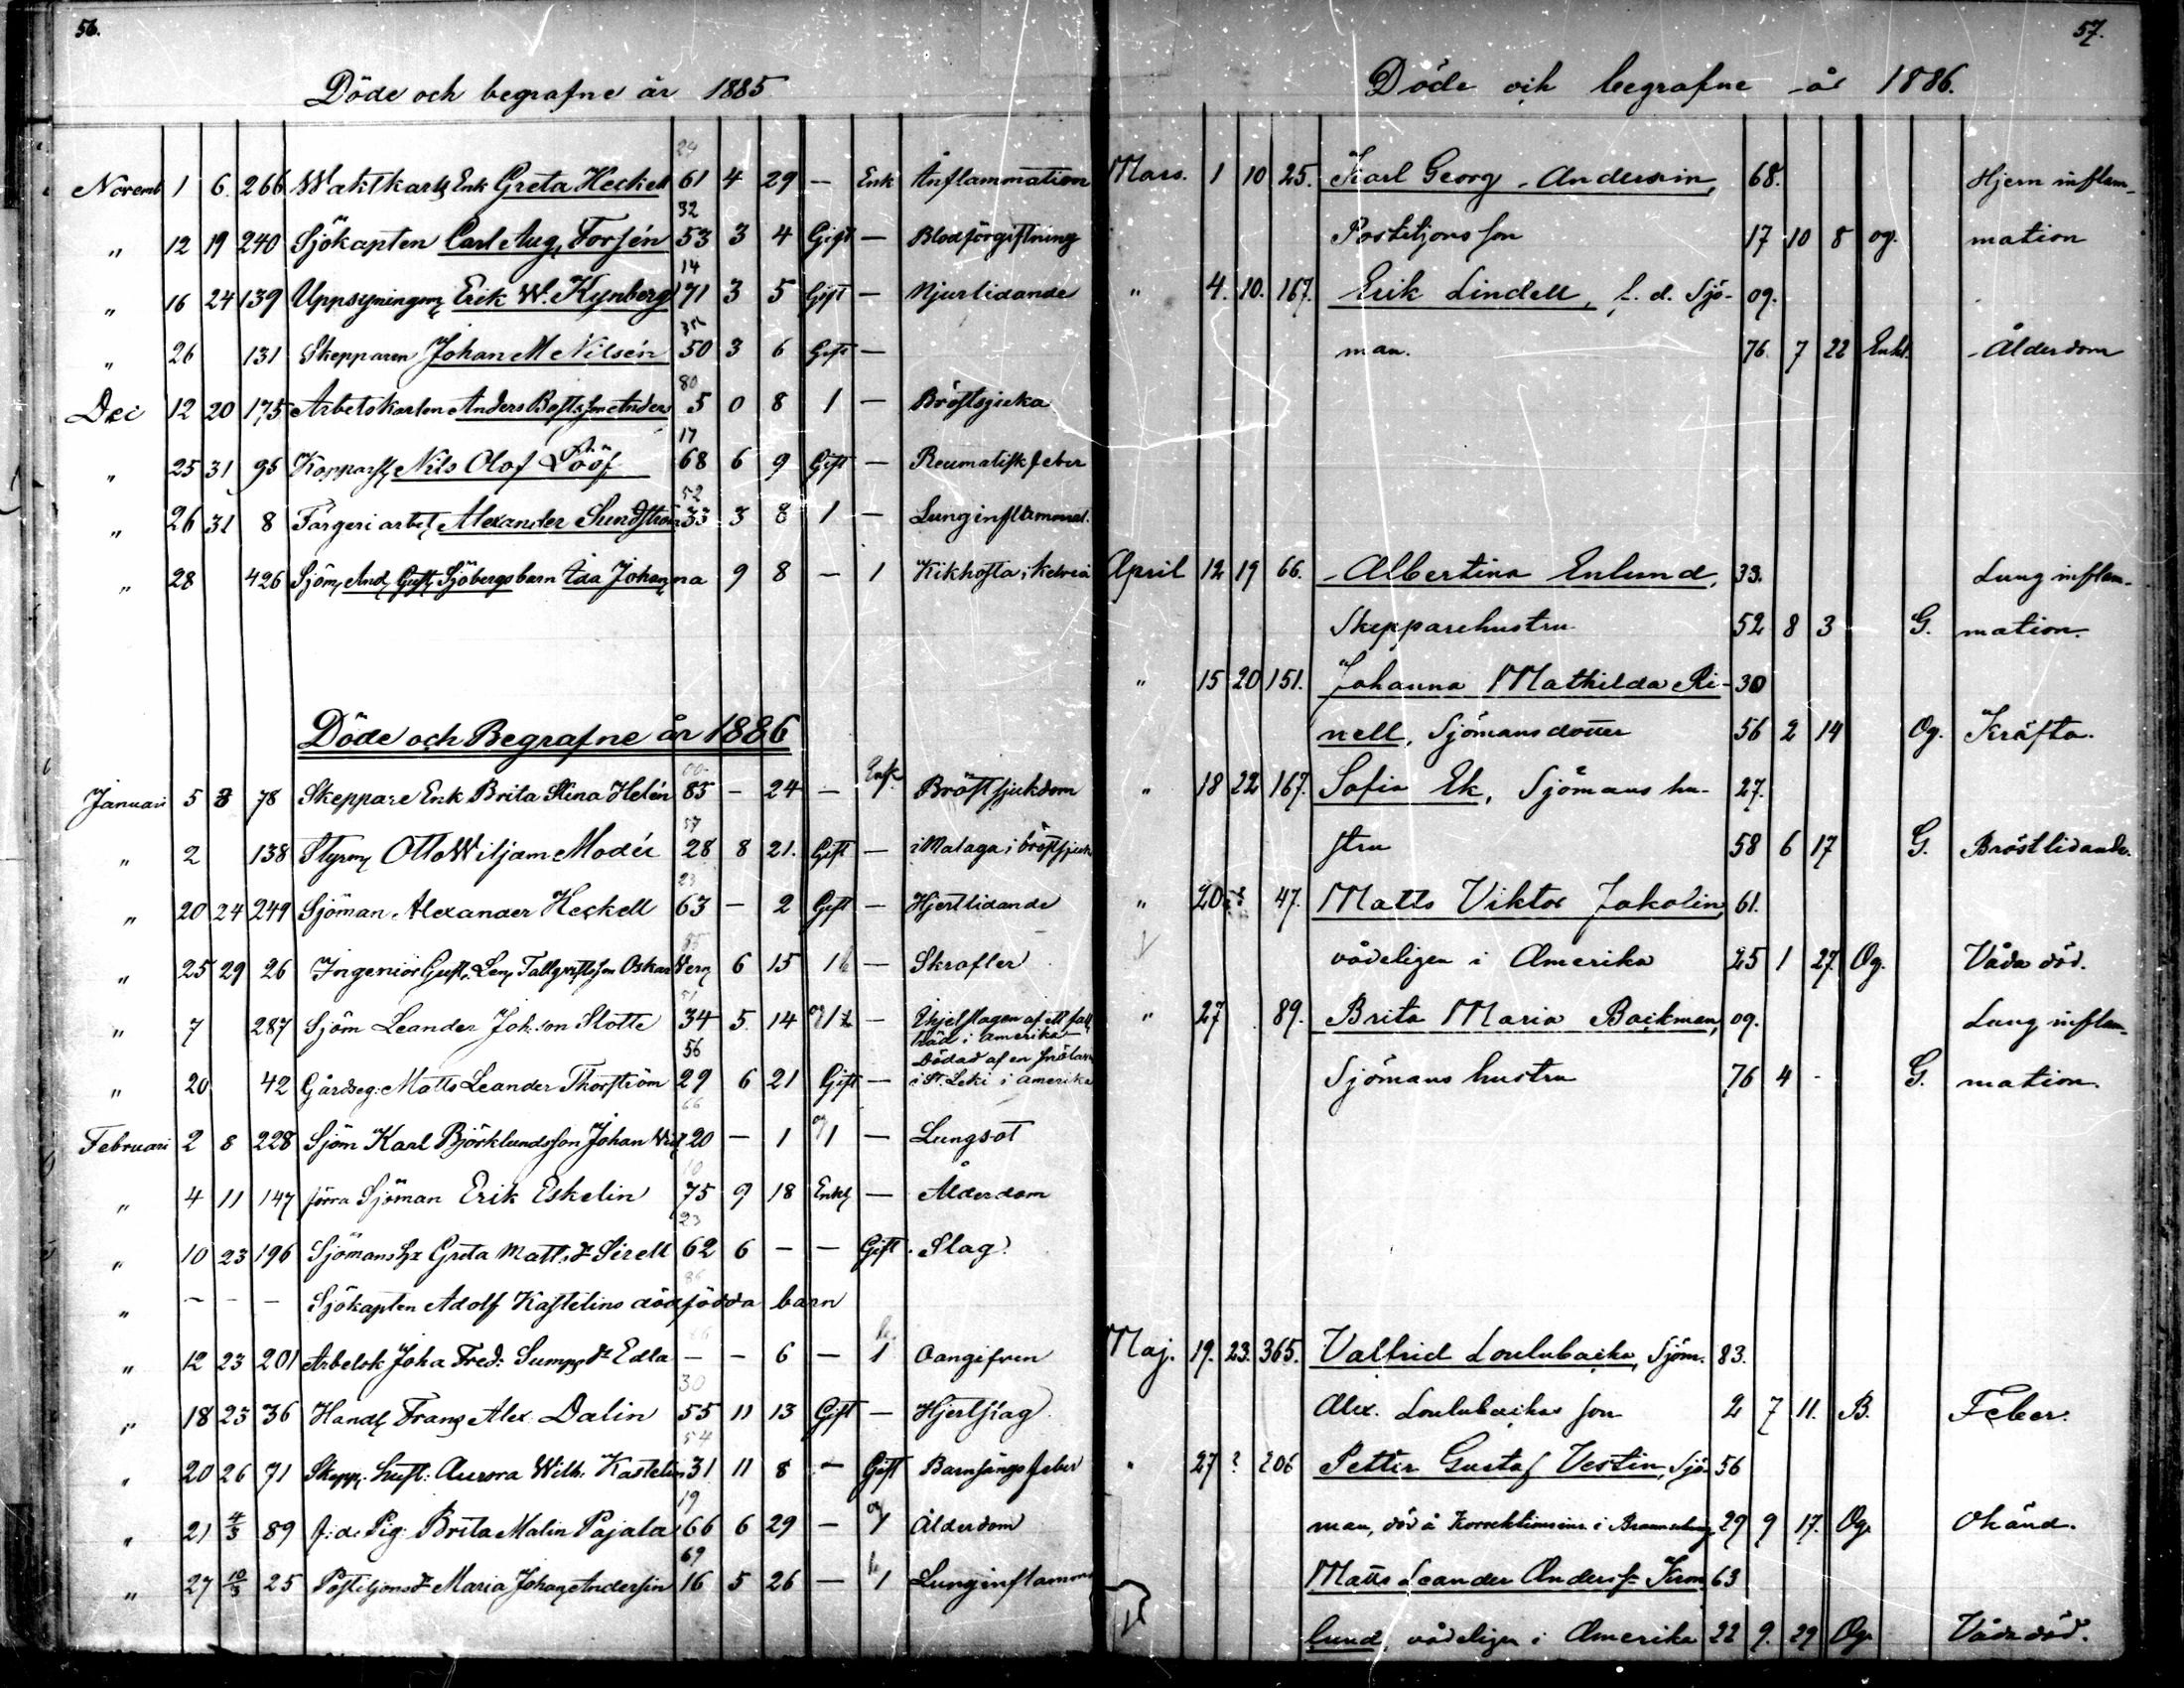 56.
Döde och begrafne år 1885
24
Novemb 1 6. 266 Waktkarls Enk Greta Heckell 61 4 29 — Enk Inflammation
32
" 12 19 240 Sjökapten Carl Aug, Forsén 53 3 4 Gift — Blodförgiftning
14
" 16 24 139 Uppsyningsm Erik W. Kynberg 71 3 5 Gift — Njurlidande
" 26 131 Skepparen Johan M Nilsén 50 3 6 Gift —
80
Dec 12 20 175 Arbetskarlen Anders Bofts son Anders 5 0 8 1 — Bröstsjuka
17
" 25 31 95 Kopparsl Nils Olof Lööf 68 6 9 Gift — Reumatisk feber
52
" 26 31 8 Färgeriarbet, Alexander Sundström 33 3 8 1 — Lunginflammat.
" 28 426 Sjöm, And, Gust, Sjöbergs barn Ida Johanna 9 8 — 1 Kikhosta i Kelviå
Döde och Begrafne år 1886
00
Januari 5 8 78 Skeppare Enk Brita Stina Helén 85 — 24 — Enk. Bröstsjukdom
57
" 2 138 Styrm, Otto Wiljam Modér 28 8 21. Gift — i Malaga i bröstsjuk
23
" 20 24 249 Sjöman Alexander Heckell 63 — 2 Gift — Hjertlidande
85
" 25 29 26 Ingeniör Gust. Len, Tallqvists son Oskar Wern 6 15 1 — Skrofler
51
" 7 287 Sjöm Leander Joh:son Slotte 34 5 14 og 1 — Ihjelslagen af ett fall, träd i Amerika
56
" 20 42 Gårdseg: Matts Leander Thorström 29 6 21 Gift — Dödad af en snölavin i St. Leki i Amerika
66
Februari 2 8 228 Sjöm Karl Björklunds son Johan Wict 20 — 1 og 1 — Lungsot
10
" 4 11 147 förra Sjöman Erik Eskelin 75 9 18 Enkl — Ålderdom
23
" 10 23 196 Sjömans Hu Greta Matts dr Sirell 62 6 — — Gift Slag
86
" — — — Sjökapten Adolf Kastelins dödfödda barn
86
" 12 23 201 Arbetsk Joha Fred: Sumps dr Edla — — 6 — 1 Oangifven
30
" 18 23 36 Handl Frans Alex. Dalin 55 11 13 Gift — Hjertslag
54
" 20 26 71 Skepp, hust: Aurora Wilh. Kastelin 31 11 8 — Gift Barnsängsfeber
19
" 21 4/3 89 f.d. Pig. Brita Malin Pajala 66 6 29 — og 1 Ålderdom
69
" 27 10/3 25 Postiljons dr Maria Johan, Andersin 16 5 26 — 1 Lunginflamma
57.
Döde och begrafne år 1886.
Mars. 1 10 25. Karl Georg Andersin, 68. Hjerninflam-
Postiljons son 17 10 8 og. mation
" 4. 10. 167. Erik Lindell, f. d. Sjö- 09.
man. 76. 7 22 Enkl. Ålderdom
April 12 19 66. Albertina Enlund, 33. Lung inflam-
Skepparehustru 52 8 3 G. mation.
" 15 20 151. Johanna Mathilda Ri- 30
nell, Sjömansdotter 56 2 14 Og. Kräfta.
" 18 22 167. Sofia Ek, Sjömans hu- 27.
stru 58 6 17 G. Bröstlidande.
" 20 47. Matts Viktor Jakolin, 61.
vådeligen i Amerika 25 1 27. Og. Våda död.
" 27 89. Brita Maria Backman, 09. Lung inflam-
Sjömans hustru 76 4 - G. mation.
Maj. 19. 23. 365. Valfrid Loulubacka, Sjöm. 83.
Alex. Loulubackas son 2 7 11. B. Feber.
" 27 ? 206 Petter Gustaf Vestin, Sjö- 56
man, död å Korrektionsinr i Braunschweig 29 9 17. Og. Okänd.
Matts Leander Anders s. Kron 63
lund, vådeligen i Amerika 22 9. 29 Og. Våda död.